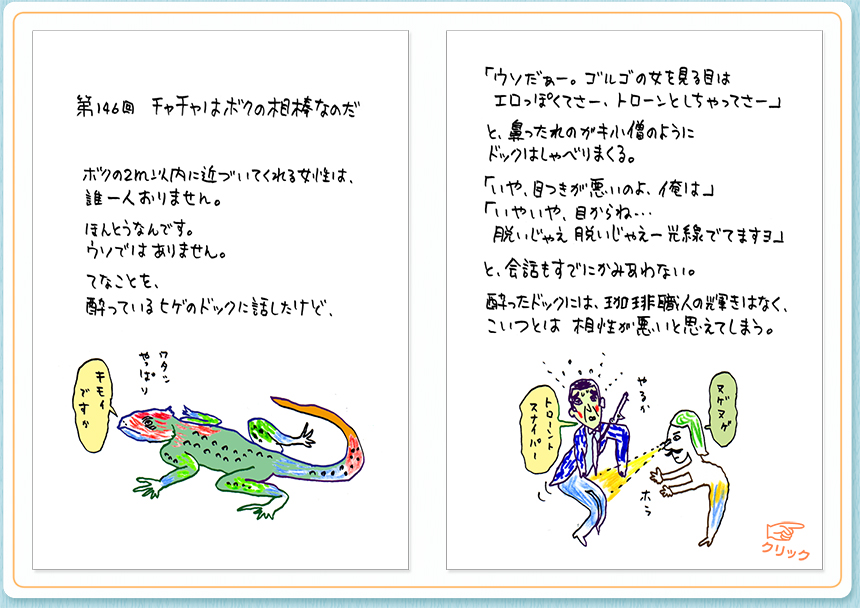 第146回 チャチャはボクの相棒なのだ
ボクの2m以内に近づいてくれる女性は、
誰一人おりません。
ほんとうなんです。
ウソではありません。
てなことを、
酔っているヒゲのドックに話したけど、
ワタシ
やっぱり
キモイ
ですか
「ウソだぁー。ゴルゴの女を見る目は
エロっぽくてさー、トローンとしちゃってさー」
と、鼻ったれのガキ小僧のように
ドックはしゃべりまくる。
「いや、目つきが悪いのよ、俺は」
「いやいや、目からね…
脱いじゃえ脱いじゃえー光線でてますヨ」
と、会話もすでにかみあわない。
酔ったドックには、珈琲職人の輝きはなく、
こいつとは 相性が悪いと思えてしまう。
トローント
スナイパー
やるか
ヌゲヌゲ
ホラ
クリック